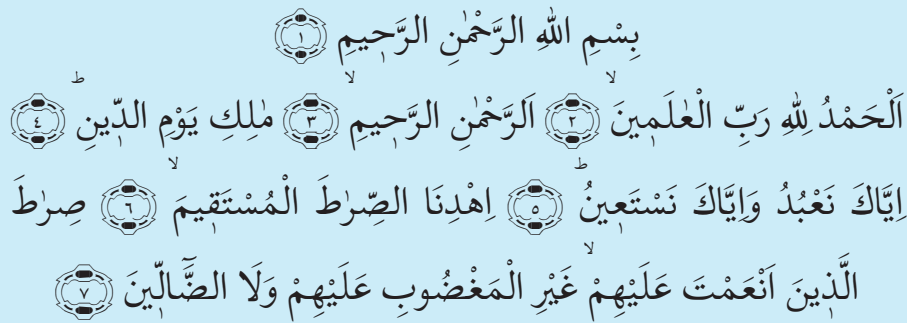 بِسْمِ اللهِ الرَّحْمٰنِ الرَّحٖيمِ ﴿١﴾
اَلْحَمْدُ لِلّٰهِ رَبِّ الْعٰلَمٖينَۙ ﴿٢﴾ اَلرَّحْمٰنِ الرَّحٖيمِۙ ﴿٣﴾ مٰلِكِ يَوْمِ الدّٖينِؕ ﴿٤﴾
اِيَّاكَ نَعْبُدُ وَاِيَّاكَ نَسْتَعٖينُؕ ﴿٥﴾ اِهْدِنَا الصِّرٰطَ الْمُسْتَقٖيمَۙ ﴿٦﴾ صِرٰطَ
الَّذٖينَ اَنْعَمْتَ عَلَيْهِمْۙ غَيْرِ الْمَغْضُوبِ عَلَيْهِمْ وَلَا الضَّٓالّٖينَ ﴿٧﴾